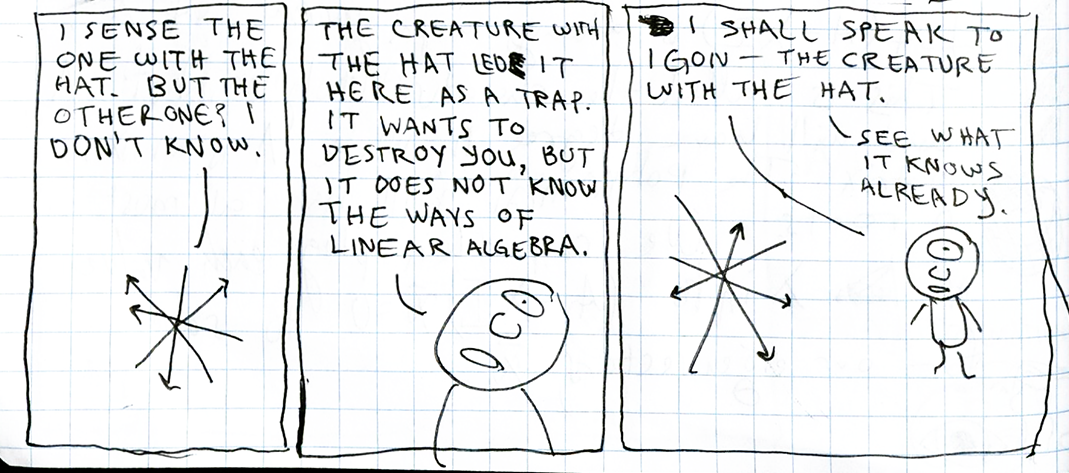 I SENSE THE
ONE WITH THE
HAT. BUT THE
OTHER ONE? I
DON'T KNOW.
THE CREATURE WITH
THE HAT LED IT
HERE AS A TRAP.
IT WANTS TO
DESTROY YOU, BUT
IT DOES NOT KNOW
THE WAYS OF
LINEAR ALGEBRA.
I SHALL SPEAK TO
IGON — THE CREATURE
WITH THE HAT.
SEE WHAT
IT KNOWS
ALREADY.